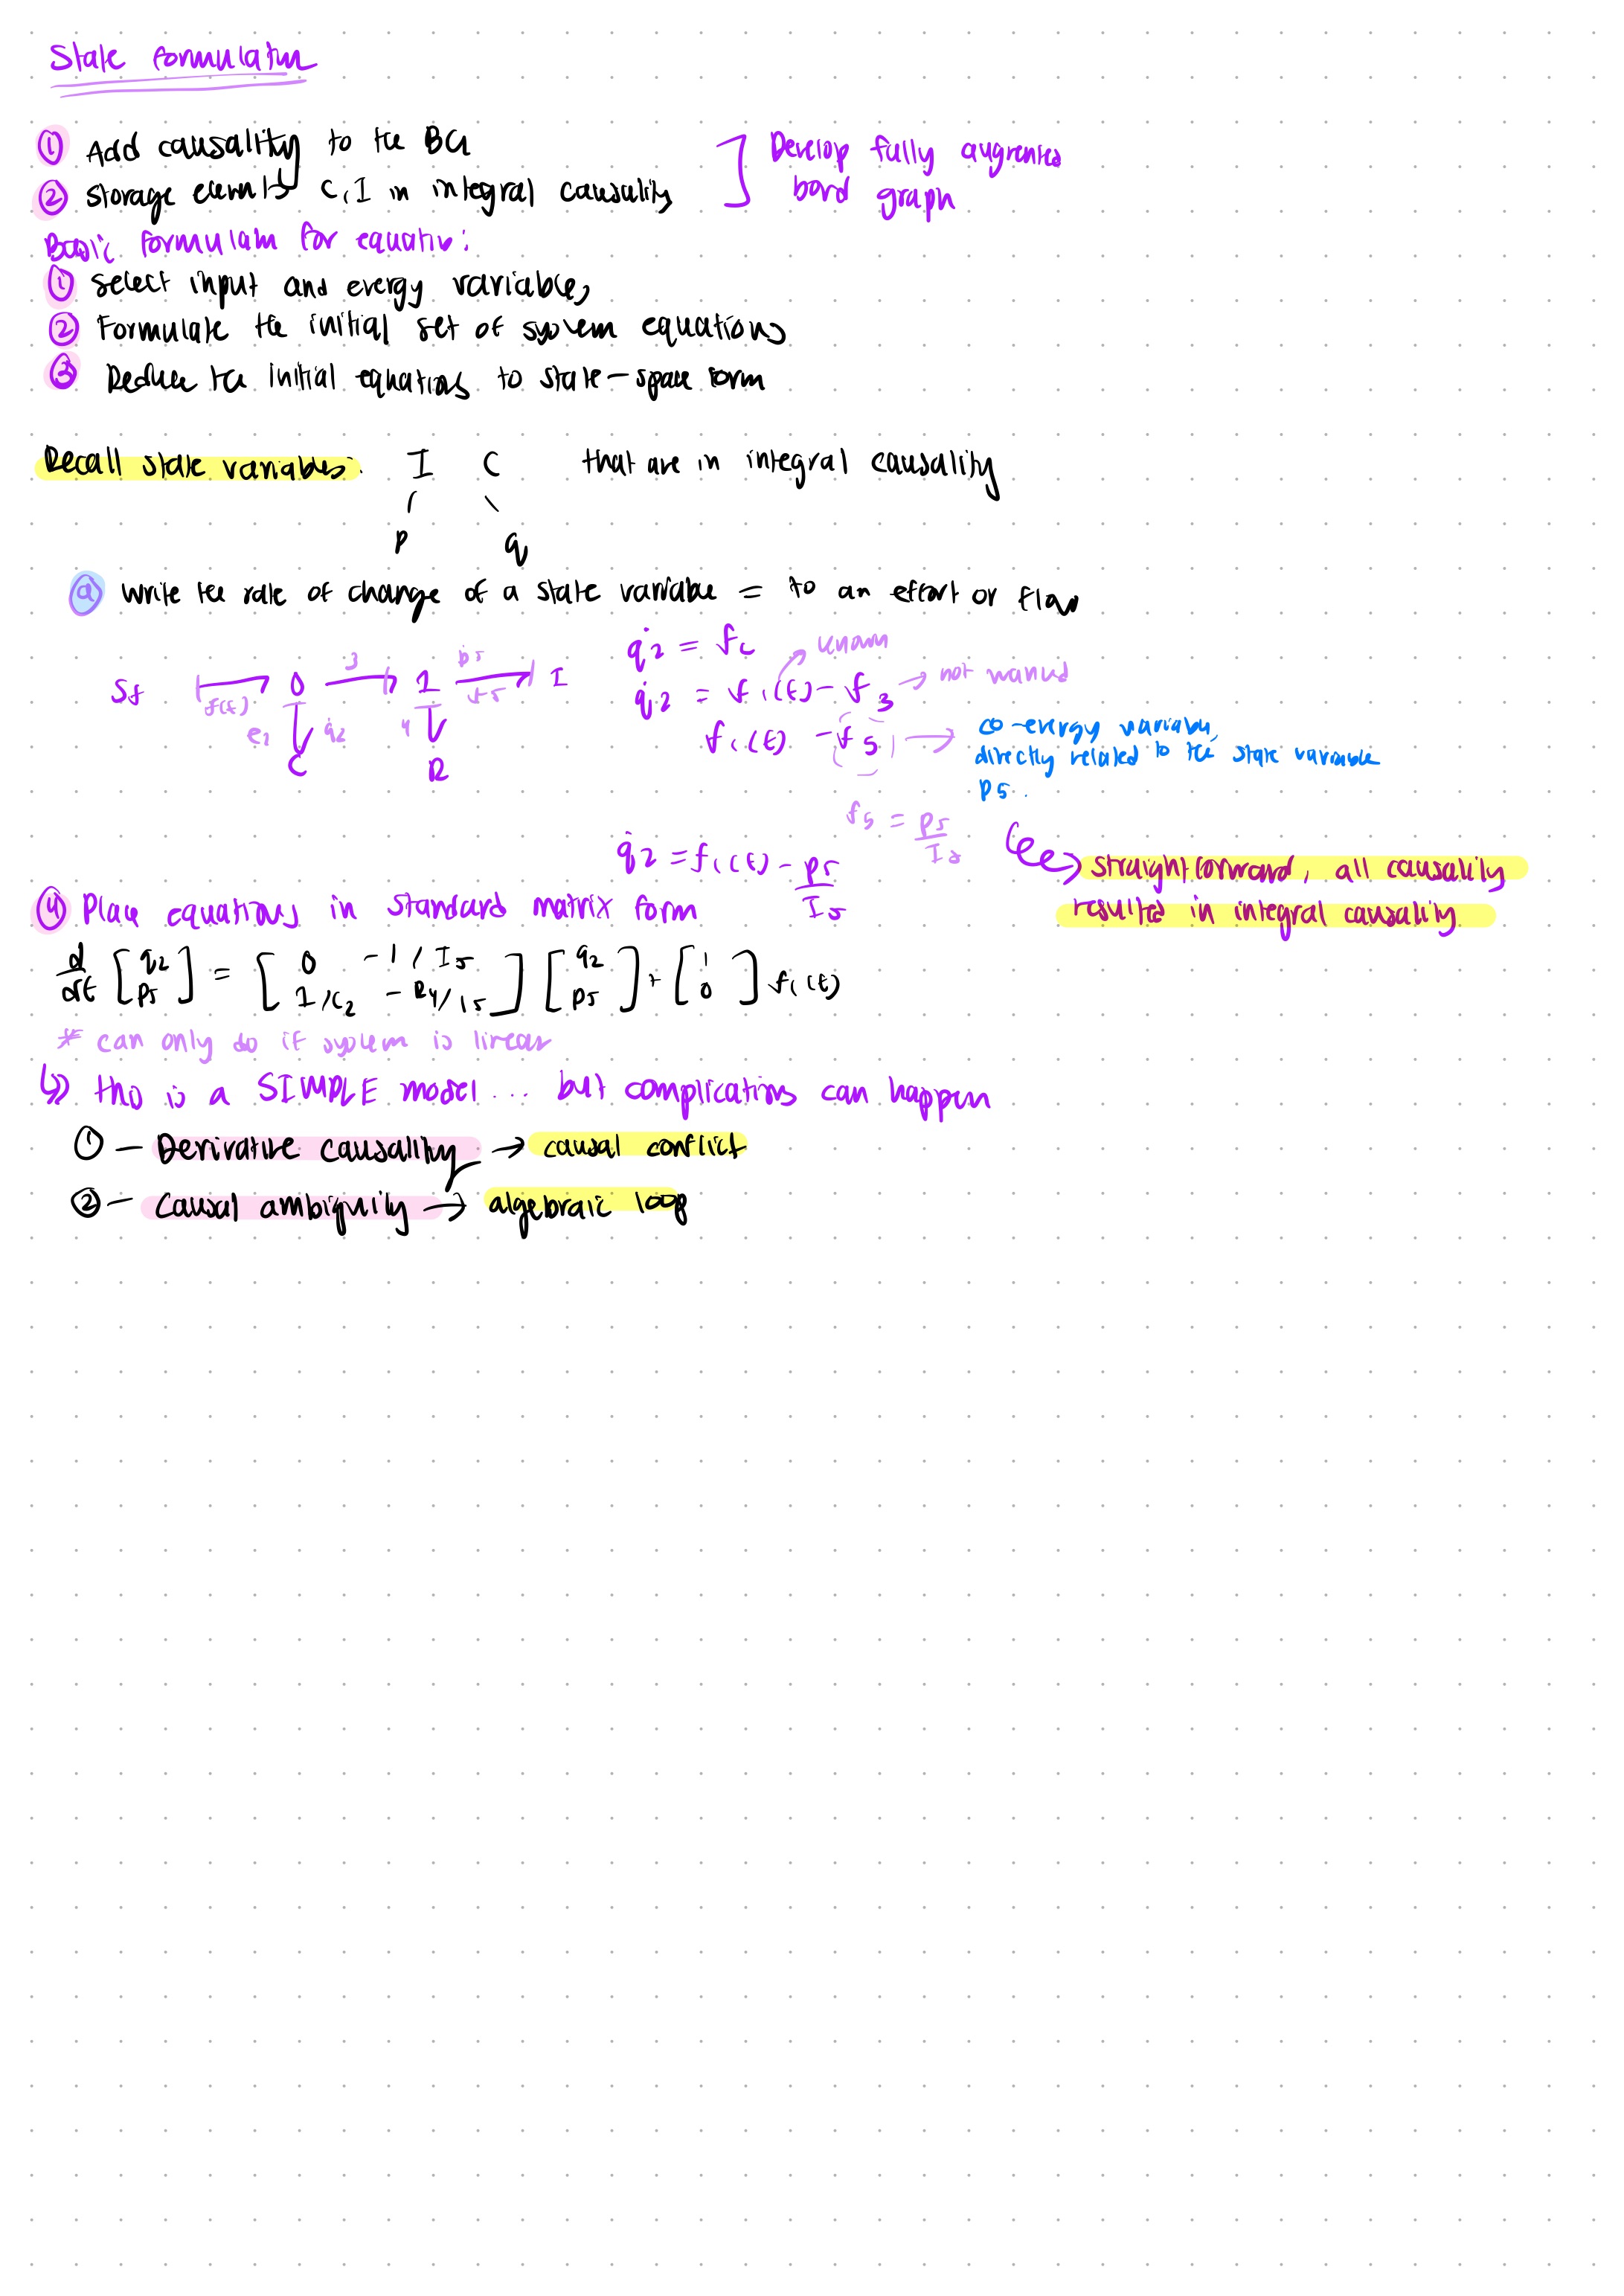 State formulation
① Add causality to the BG
② storage elements C, I in integral causality
] Develop fully augmented
bond graph
Basic formulam for equatio:
① select input and energy variables
② Formulate the initial set of system equations
③ Reduce the initial equations to state-space form
Recall state variables: I C that are in integral causality
p q
ⓐ write the rate of change of a state variable = to an effort or flow
Sf f(t) 0 3 1 p5 f5 I
e2 q̇2 4
C R
q̇2 = fc
q̇2 = f1(t) - f3 → not wanted
f1(t) - f5 → co-energy variable,
directly related to the state variable
p5.
f5 = p5/I5
q̇2 = f1(t) - p5/I5
→ straightforward, all causality
resulted in integral causality
④ Place equations in standard matrix form
d/dt [q2 p5] = [0 -1/I5 1/C2 -R4/I5] [q2 p5] + [1 0] f1(t)
* can only do if system is linear
↳ this is a SIMPLE model... but complications can happen
① - Derivative causality → causal conflict
② - Causal ambiguity → algebraic loop